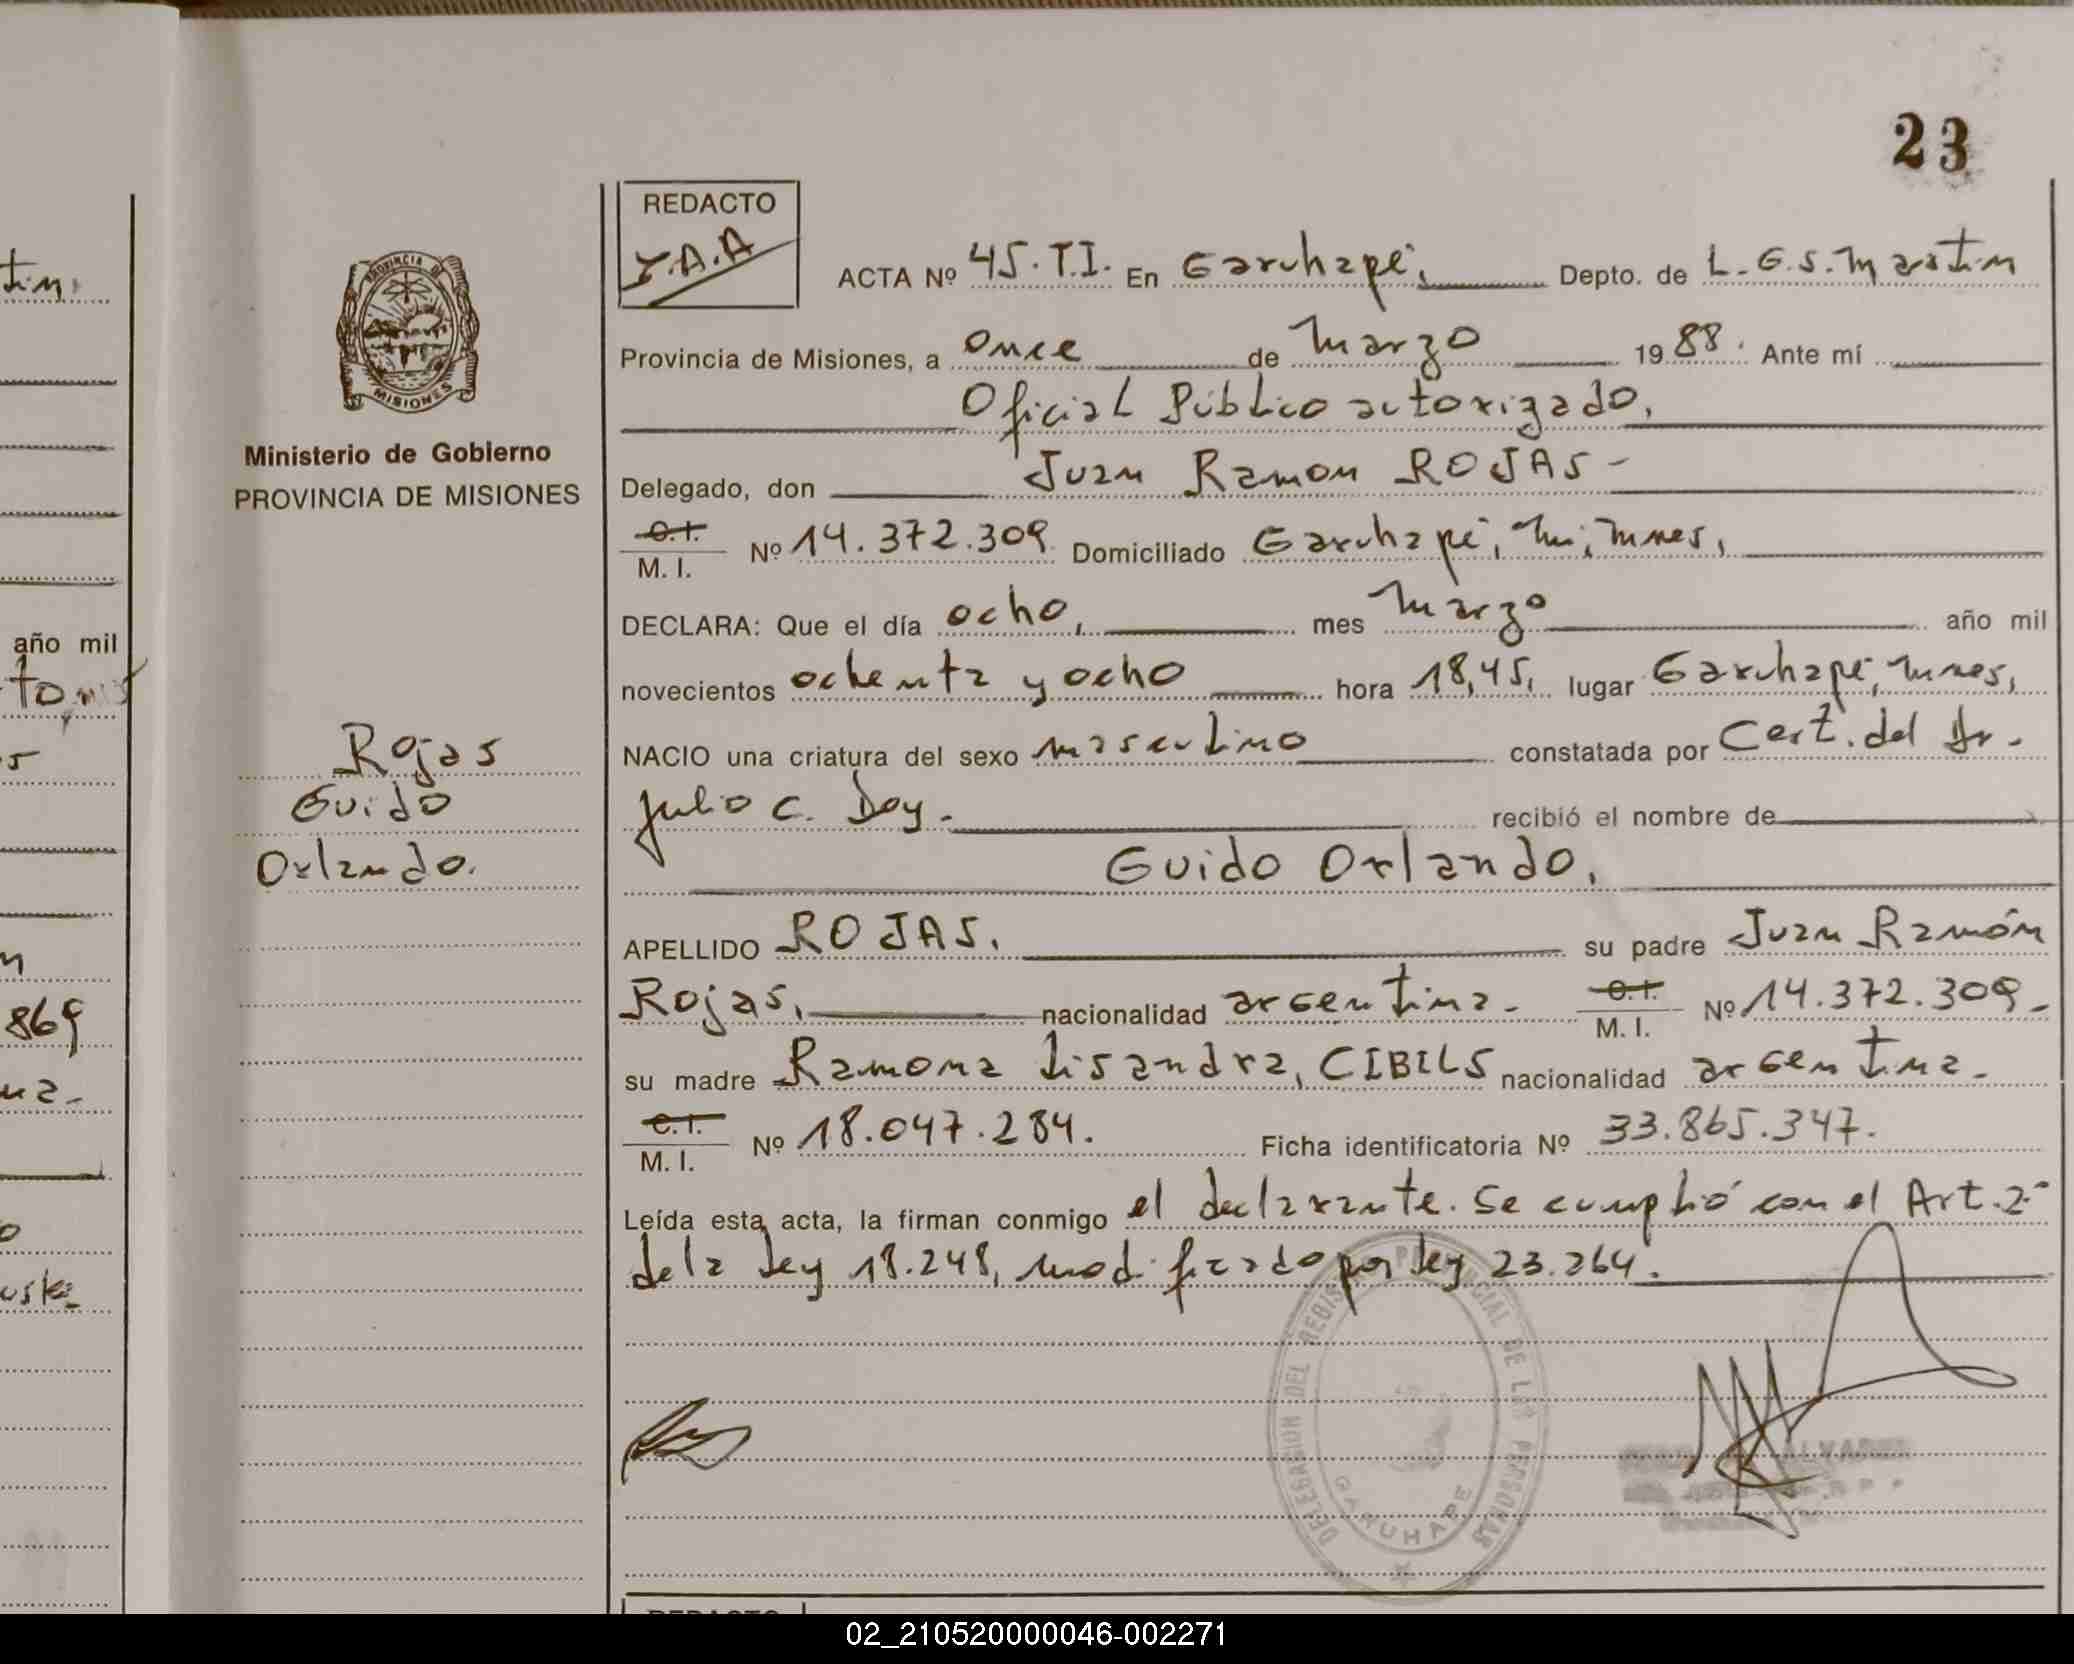 23
REDACTO
ACTA Nº 45.T.I. En Garuhapé, Depto. de L.G.S.Martin
Provincia de Misiones, a once de marzo 1988. Ante mí
Oficial Público autorizado,
Delegado, don Juan Ramon ROJAS-
C.I. M.I. Nº 14.372.309. Domiciliado Garuhapé, Mnes,
DECLARA: Que el día ocho, mes marzo año mil
novecientos ochenta y ocho hora 18,45, lugar Garuhapé, Mnes,
NACIO una criatura del sexo masculino constatada por Cert. del Dr.
Julio C. Doy. recibió el nombre de
Guido Orlando,
APELLIDO ROJAS, su padre Juan Ramón
Rojas, nacionalidad argentina- C.I. M.I. Nº 14.372.309-
su madre Ramona Lisandra, CIBILS nacionalidad argentina-
C.I. M.I. Nº 18.047.284. Ficha identificatoria Nº 33.865.347.
Leída esta acta, la firman conmigo el declarante. Se cumplió con el Art.2º
de la Ley 18.248, modificado por ley 23.264.
Ministerio de Gobierno
PROVINCIA DE MISIONES
Rojas
Guido
Orlando.
PROVINCIA DE
MISIONES
DELEGACION DEL REGISTRO PROVINCIAL DE LAS PERSONAS
GARUHAPE
ALVAREZ
tin.
año mil
869
na-
REDACTO
02_210520000046-002271